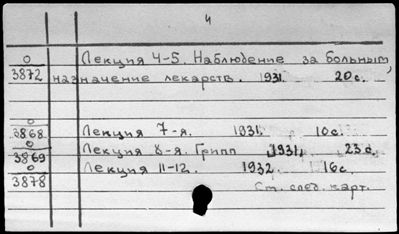 4
О Лекция 4-5. Наблюдение за больным,
3872 назначение лекарств. 1931. 20 с.
О
3868 Лекция 7-я. 1931. 10 с.
О
3869 Лекция 8-я. Грипп 1931. 23 с.
О Лекция 11-12. 1932. 16 с.
3878
См. след. карт.